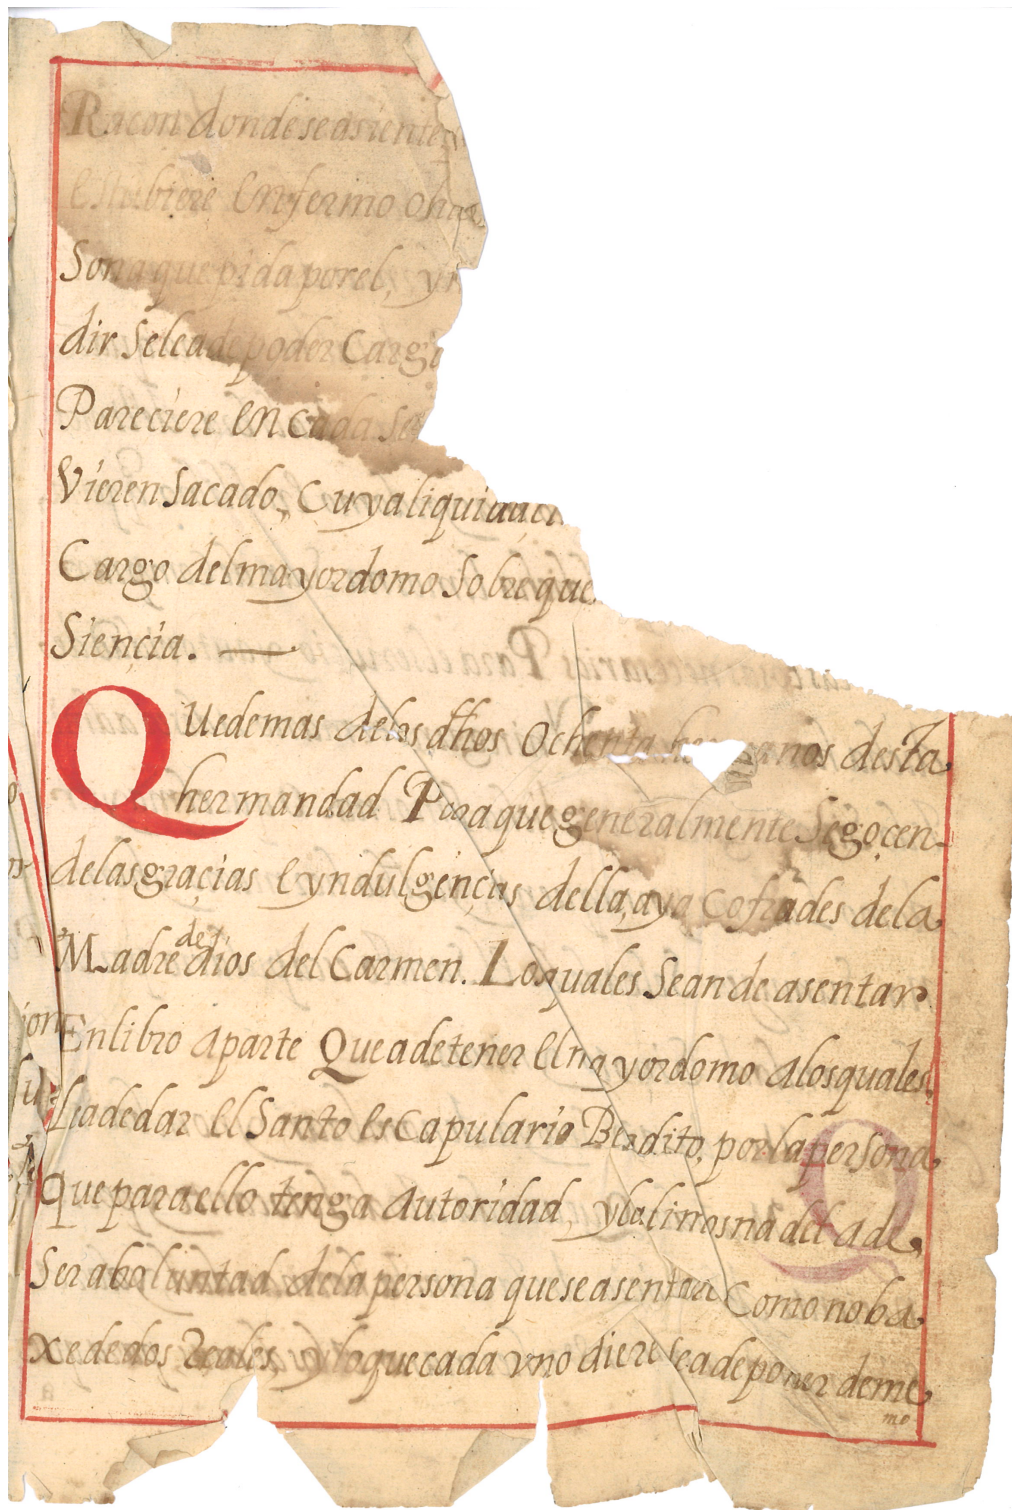 Racon donde se asiente, y
estubiere enfermo o ha
Sona que pida por el, y
dir Sele a de poder Cargi
Pareciere en cada Se
Vieren Sacado, Cuya liquidaci
Cargo del mayordomo Sobre que
Siençia.
Que demas de los dhos ochenta hermanos desta
hermandad Para que generalmente Se goçen
de las graçias e yndulgençias della, aya Cofrades de la
Madre de dios del Carmen. Los quales Sean de asentar
En libro aparte Que a de tener el mayordomo a los quales
Se a de dar el Santo esCapulario Bendito, por la persona
Que para ello tenga autoridad, y la limosna del a de
Ser a boluntad de la persona que se asentare Como no ba
xe de dos Reales, y lo que cada vno diere se a de poner deme
mo